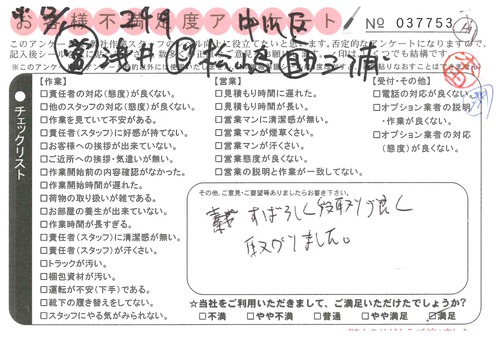 お客様不満足度アンケート
No 037753
【作業】
□責任者の対応(態度)が良くない。
□他のスタッフの対応(態度)が良くない。
□作業を見ていて不安がある。
□責任者(スタッフ)に好感が持てない。
□お客様への挨拶が出来ていない。
□ご近所への挨拶・気遣いが無い。
□作業開始前の内容確認がなかった。
□作業開始時間が遅れた。
□荷物の取り扱いが雑である。
□お部屋の養生が出来ていない。
□作業時間が長すぎる。
□責任者(スタッフ)に清潔感が無い。
□責任者(スタッフ)が汗くさい。
□トラックが汚い。
□梱包資材が汚い。
□運転が不安(下手)である。
□靴下の履き替えをしてない。
□スタッフにやる気がみられない。
【営業】
□見積もり時間に遅れた。
□見積もり時間が長い。
□営業マンに清潔感が無い。
□営業マンが煙草くさい。
□営業マンが汗くさい。
□営業態度が良くない。
□営業の説明と作業が一致してない。
【受付・その他】
□電話の対応が良くない。
□オプション業者の説明
・作業が良くない。
□オプション業者の対応
(態度)が良くない。
チェックリスト
その他、ご意見・ご要望等ありましたらお書き下さい。
すばらしく段取りが良く
取りました。
☆当社をご利用いただきまして、ご満足いただけたでしょうか?
□不満 □やや不満 □普通 □やや満足 □満足